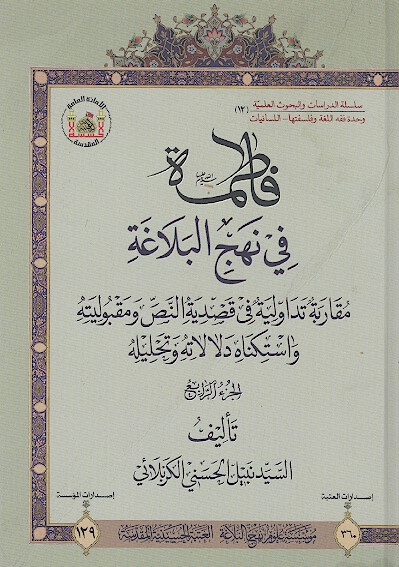 سلسلة الدراسات والبحوث العلمية (١٣)
وحدة فقه اللغة وفلسفتها - اللسانيات
الأمانة العامة
المقدسة
فاطمة
في نهج البلاغة
مقاربة تداولية في قصدية النص ومقبوليته
واستكناه دلالاته وتحليله
الجزء الرابع
تأليف
السيد نبيل الحسني الكربلائي
إصدارات العتبة
٣٦٠
مؤسسة علوم نهج البلاغة العتبة الحسينية المقدسة
إصدارات المؤسسة
١٣٩